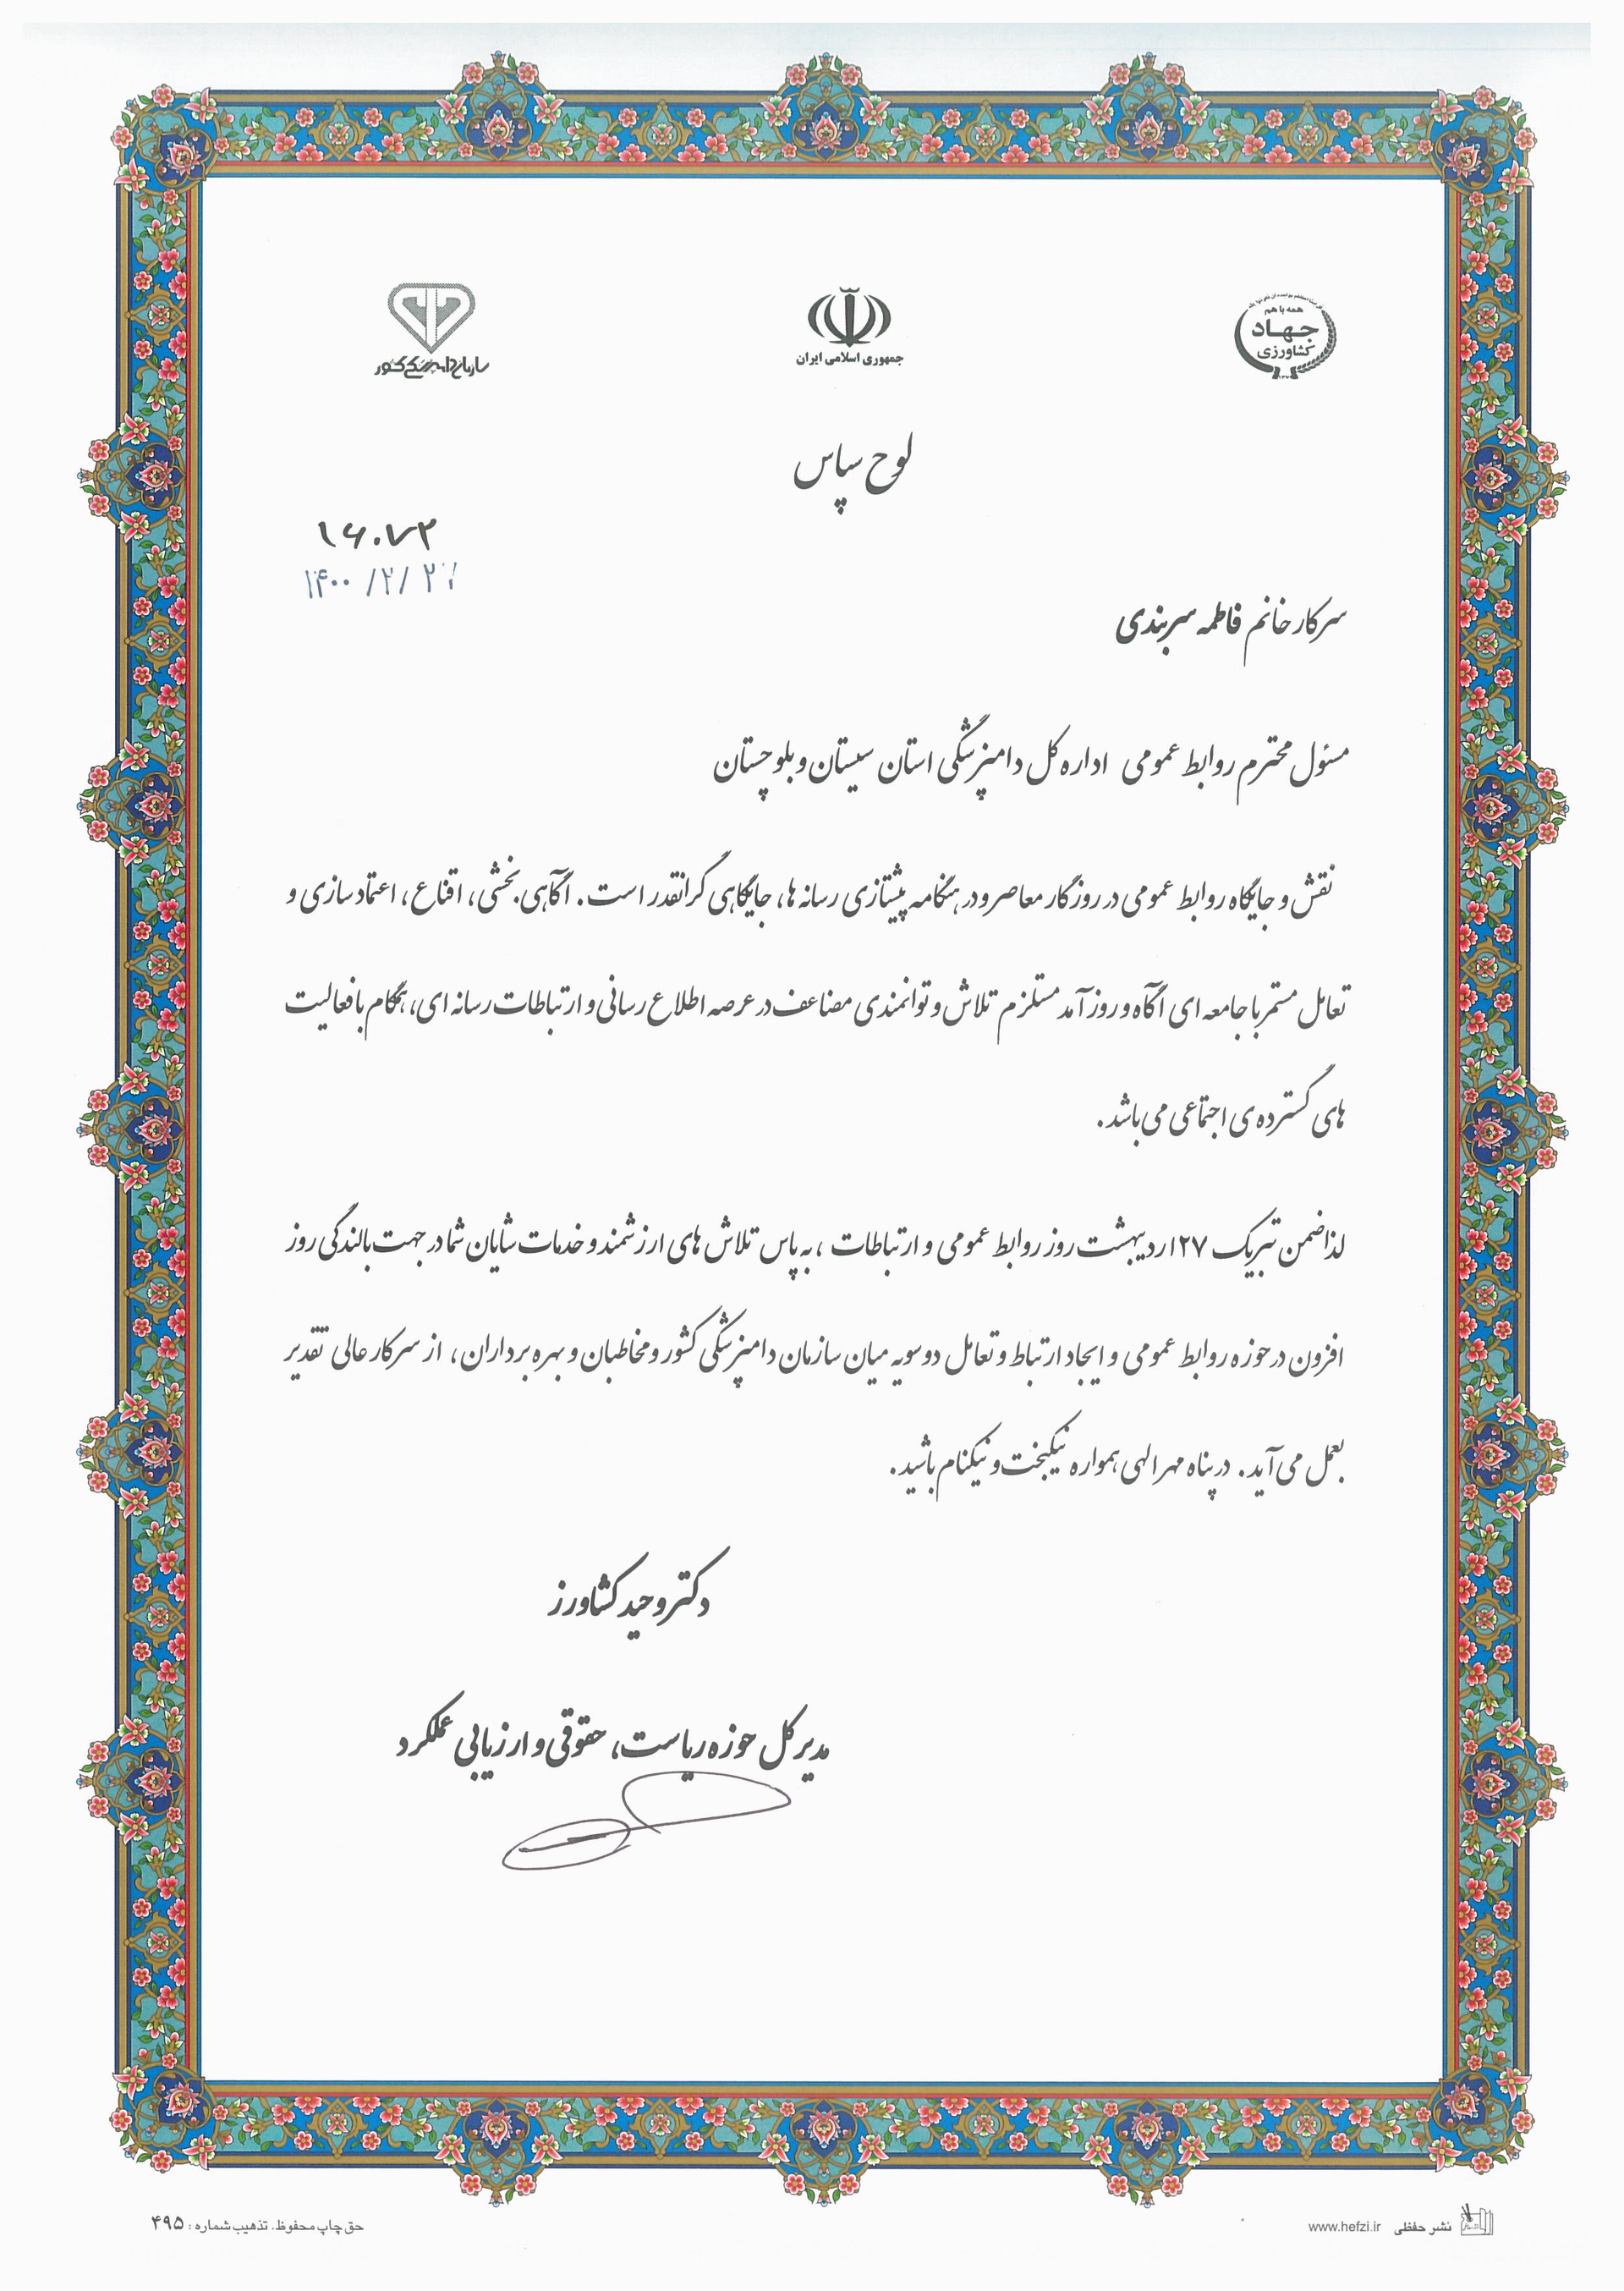 همه با هم
جهاد
کشاورزی
جمهوری اسلامی ایران
سازمان دامپزشکی کشور
لوح سپاس
۱۶۰۷۲
۱۴۰۰ /۲/ ۲۷
سرکار خانم فاطمه سربندی
مسئول محترم روابط عمومی اداره کل دامپزشکی استان سیستان و بلوچستان
نقش و جایگاه روابط عمومی در روزگار معاصر و در هنگامه پیشتازی رسانه ها، جایگاهی گرانقدر است. آگاهی بخشی، اقناع، اعتماد سازی و
تعامل مستمر با جامعه ای آگاه و روزآمد مستلزم تلاش و توانمندی مضاعف در عرصه اطلاع رسانی و ارتباطات رسانه ای، همگام با فعالیت
های گسترده ی اجتماعی می باشد.
لذا ضمن تبریک ۲۷ اردیبهشت روز روابط عمومی و ارتباطات ، به پاس تلاش های ارزشمند و خدمات شایان شما در جهت بالندگی روز
افزون در حوزه روابط عمومی و ایجاد ارتباط و تعامل دوسویه میان سازمان دامپزشکی کشور و مخاطبان و بهره برداران، از سرکار عالی تقدیر
بعمل می آید. در پناه مهر الهی همواره نیکبخت و نیکنام باشید.
دکتر وحید کشاورز
مدیر کل حوزه ریاست، حقوقی و ارزیابی عملکرد
نشر حفظی www.hefzi.ir
حق چاپ محفوظ. تذهیب شماره : ۴۹۵